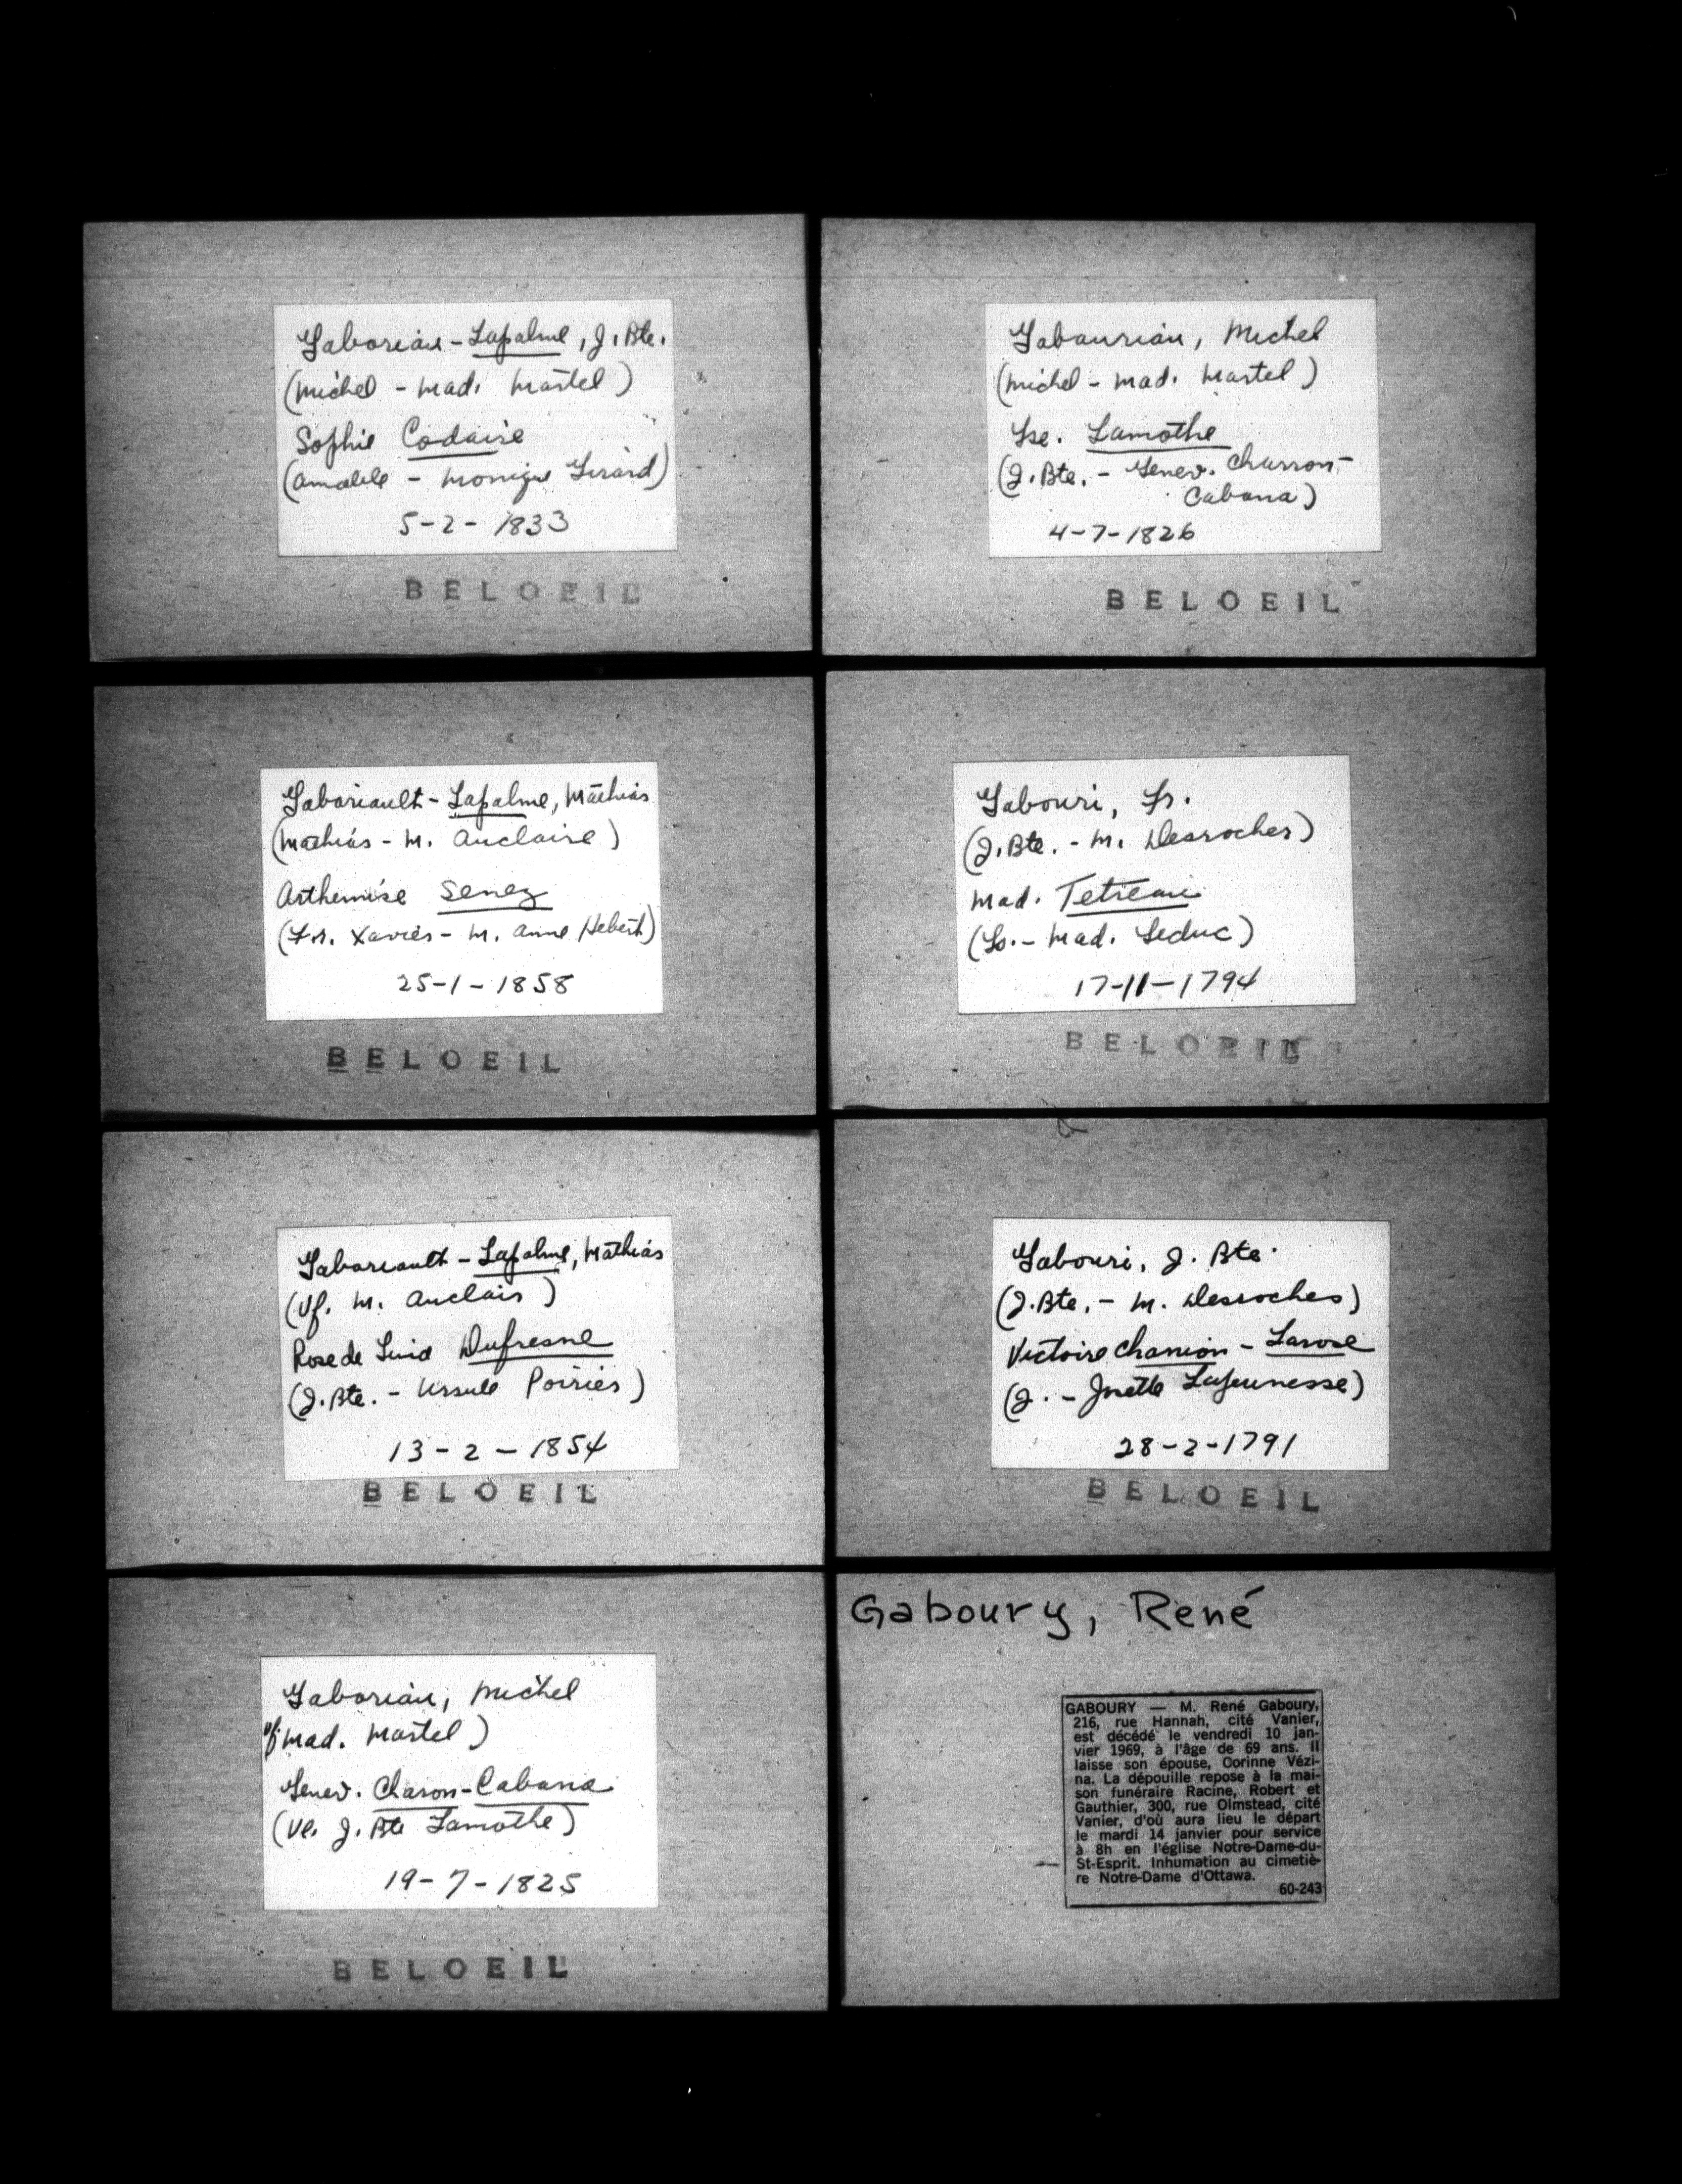 Gaboriau - Lapalme, J. Bte.
(Michel - Mad. Martel)
Sophie Codaire
(Amable - Monique Girard)
5-2-1833
BELOEIL
Gabauriau, Michel
(Michel - Mad. Martel)
Lse. Lamothe
(J. Bte. - Genev. Charron-
Cabana)
4-7-1826
BELOEIL
Gaboriault - Lapalme, Mathias
(Mathias - M. Auclaire)
Arthemise Senez
(Fr. Xavier - M. Anne Hebert)
25-1-1858
BELOEIL
Gabouri, Fr.
(J. Bte. - M. Desroches)
Mad. Tetreau
(Ls. - Mad. Leduc)
17-11-1794
BELOEIL
Gaboriault - Lapalme, Mathias
(Vf. M. Auclair)
Rose de Lima Dufresne
(J. Bte. - Ursule Poirier)
13-2-1854
BELOEIL
Gabouri, J. Bte.
(J. Bte. - M. Desroches)
Victoire Chanion - Larose
(J. - Jsette Lajeunesse)
28-2-1791
BELOEIL
Gaboriau, Michel
vf. Mad. Martel)
Genev. Charon-Cabana
(Ve. J. Bte Lamothe)
19-7-1825
BELOEIL
Gaboury, René
GABOURY — M. René Gaboury,
216, rue Hannah, cité Vanier,
est décédé le vendredi 10 jan-
vier 1969, à l'âge de 69 ans. Il
laisse son épouse, Corinne Vézi-
na. La dépouille repose à la mai-
son funéraire Racine, Robert et
Gauthier, 300, rue Olmstead, cité
Vanier, d'où aura lieu le départ
le mardi 14 janvier pour service
à 8h en l'église Notre-Dame-du-
St-Esprit. Inhumation au cimetiè-
re Notre-Dame d'Ottawa.
60-243